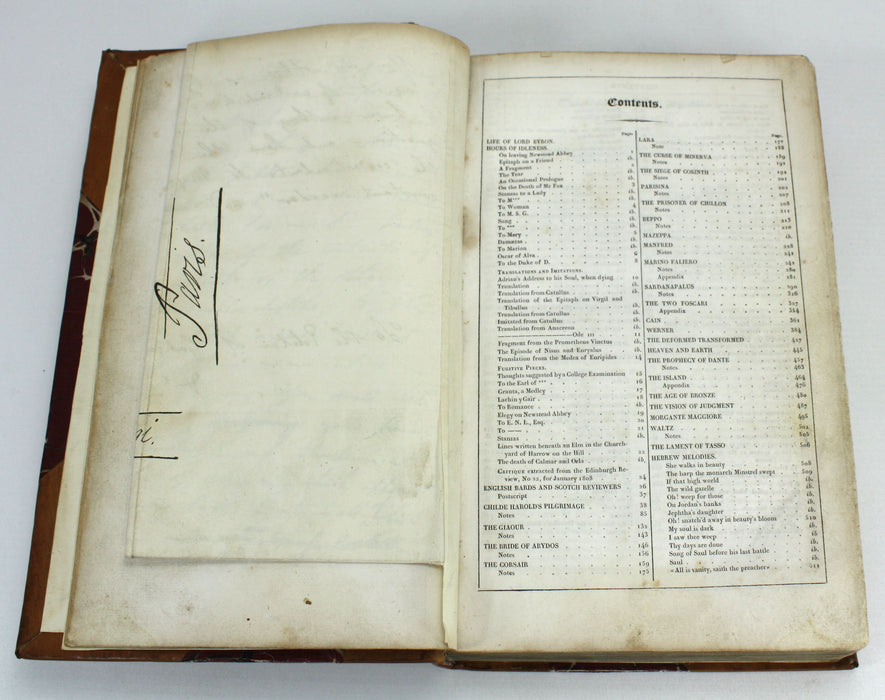 Paris.
Contents.
Page
LIFE OF LORD BYRON.
HOURS OF IDLENESS.
On leaving Newstead Abbey 1
Epitaph on a Friend ib.
A Fragment
The Tear ib.
An Occasional Prologue ib.
On the Death of Mr Fox 3
Stanzas to a Lady ib.
To M*** ib.
To Woman 4
To M. S. G. ib.
Song ib.
To *** ib.
To Mary 5
Damætas ib.
To Marion ib.
Oscar of Alva 6
To the Duke of D. 8
TRANSLATIONS AND IMITATIONS.
Adrian's Address to his Soul, when dying 10
Translation ib.
Translation from Catullus ib.
Translation of the Epitaph on Virgil and
Tibullus ib.
Translation from Catullus ib.
Imitated from Catullus ib.
Translation from Anacreon ib.
——— Ode III 11
Fragment from the Prometheus Vinctus ib.
The Episode of Nisus and Euryalus ib.
Translation from the Medea of Euripides 14
FUGITIVE PIECES.
Thoughts suggested by a College Examination 15
To the Earl of *** 16
Granta, a Medley 17
Lachin y Gair 18
To Romance ib.
Elegy on Newstead Abbey 19
To E. N. L., Esq. 20
To —— 21
Stanzas ib.
Lines written beneath an Elm in the Church-
yard of Harrow on the Hill 22
The death of Calmar and Orla ib.
CRITIQUE extracted from the Edinburgh Re-
view, No 22, for January 1808 24
ENGLISH BARDS AND SCOTCH REVIEWERS 26
Postscript 37
CHILDE HAROLD'S PILGRIMAGE 38
Notes 85
THE GIAOUR 132
Notes 143
THE BRIDE OF ABYDOS 146
Notes 156
THE CORSAIR 159
Notes 175
Page.
LARA 177
Note 188
THE CURSE OF MINERVA 189
Notes 191
THE SIEGE OF CORINTH 192
Notes 201
PARISINA 202
Notes 207
THE PRISONER OF CHILLON 208
Notes 211
BEPPO 213
Notes 220
MAZEPPA ib.
MANFRED 228
Notes 241
MARINO FALIERO 242
Notes 280
Appendix 281
SARDANAPALUS 290
Notes 326
THE TWO FOSCARI 327
Appendix 354
CAIN 361
WERNER 384
THE DEFORMED TRANSFORMED 427
HEAVEN AND EARTH 445
THE PROPHECY OF DANTE 457
Notes 463
THE ISLAND 464
Appendix 476
THE AGE OF BRONZE 480
THE VISION OF JUDGMENT 487
MORGANTE MAGGIORE 495
WALTZ 502
Notes 505
THE LAMENT OF TASSO 506
HEBREW MELODIES.
She walks in beauty 508
The harp the monarch Minstrel swept 509
If that high world ib.
The wild gazelle ib.
Oh! weep for those ib.
On Jordan's banks ib.
Jephtha's daughter ib.
Oh! snatch'd away in beauty's bloom 510
My soul is dark ib.
I saw thee weep ib.
Thy days are done ib.
Song of Saul before his last battle ib.
Saul ib.
«All is vanity, saith the preacher» 511